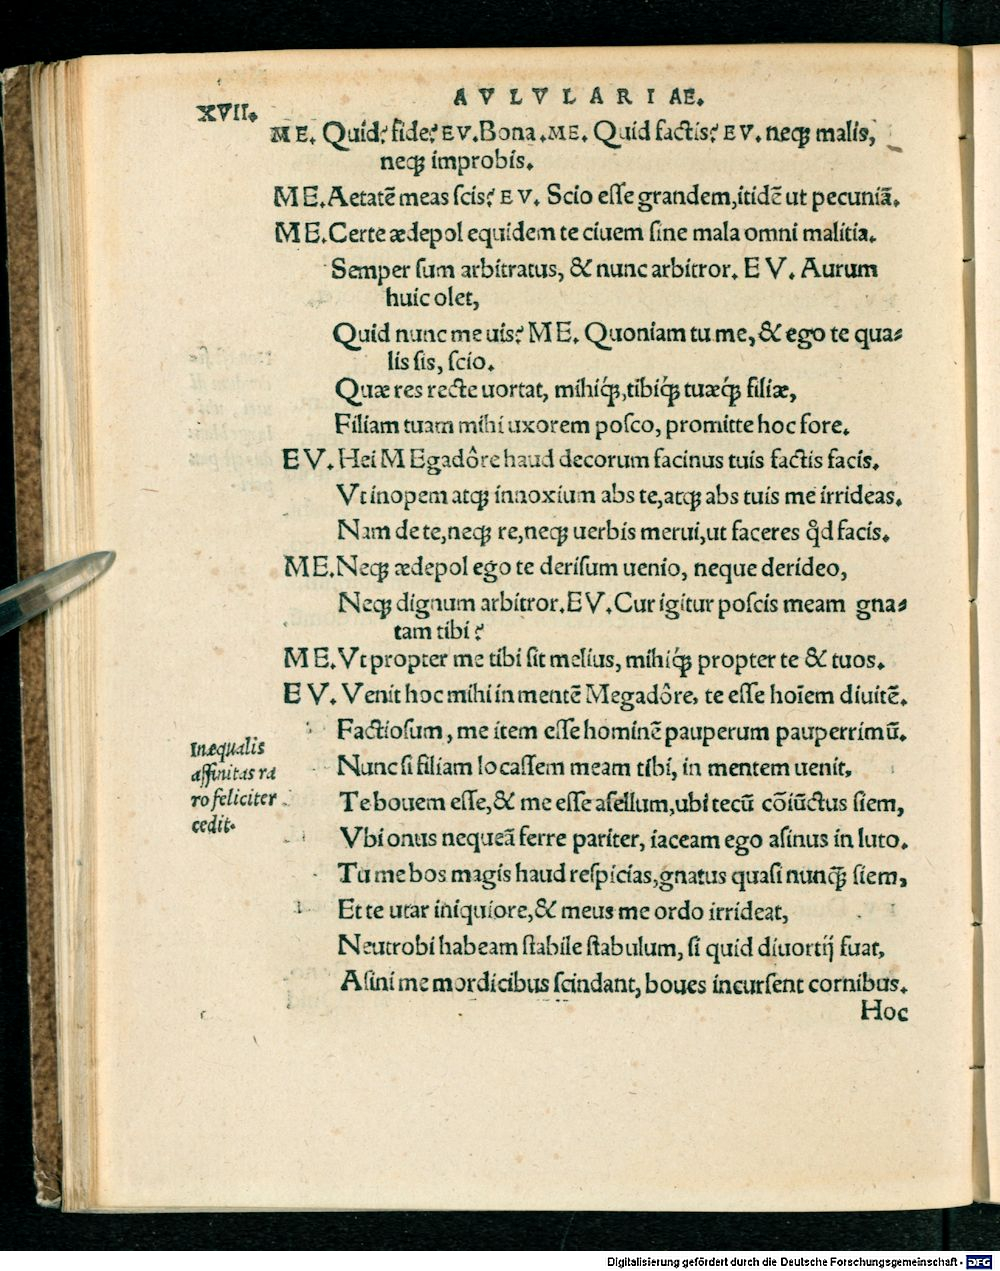 AVLVLARIAE.
XVII.
ME. Quid? fide? EV. Bona. ME. Quid factis? EV. neqꝫ malis,
neqꝫ improbis.
ME. Aetatē meas scis? EV. Scio esse grandem, itidē ut pecuniā.
ME. Certe ædepol equidem te ciuem sine mala omni malitia.
Semper sum arbitratus, & nunc arbitror. EV. Aurum
huic olet,
Quid nunc me uis? ME. Quoniam tu me, & ego te qua-
lis sis, scio.
Quæ res recte uortat, mihiqꝫ́, tibiqꝫ́ tuæqꝫ́ filiæ,
Filiam tuam mihi uxorem posco, promitte hoc fore.
EV. Hei MEgadôre haud decorum facinus tuis factis facis.
Vt inopem atqꝫ innoxium abs te, atqꝫ abs tuis me irrideas.
Nam de te, neqꝫ re, neqꝫ uerbis merui, ut faceres qͦd facis.
ME. Neqꝫ ædepol ego te derisum uenio, neque derideo,
Neqꝫ dignum arbitror. EV. Cur igitur poscis meam gna-
tam tibi?
ME. Vt propter me tibi sit melius, mihiqꝫ́ propter te & tuos.
EV. Venit hoc mihi in mentē Megadôre, te esse hoīem diuitē.
Factiosum, me item esse hominē pauperum pauperrimū.
Nunc si filiam locassem meam tibi, in mentem uenit,
Te bouem esse, & me esse asellum, ubi tecū cōiūctus siem,
Vbi onus nequeā ferre pariter, iaceam ego asinus in luto.
Tu me bos magis haud respicias, gnatus quasi nunqꝫ̄ siem,
Et te utar iniquiore, & meus me ordo irrideat,
Neutrobi habeam stabile stabulum, si quid diuortij fuat,
Asini me mordicibus scindant, boues incursent cornibus.
Hoc
Inæqualis
affinitas ra
ro feliciter
cedit.
Digitalisierung gefördert durch die Deutsche Forschungsgemeinschaft - DFG